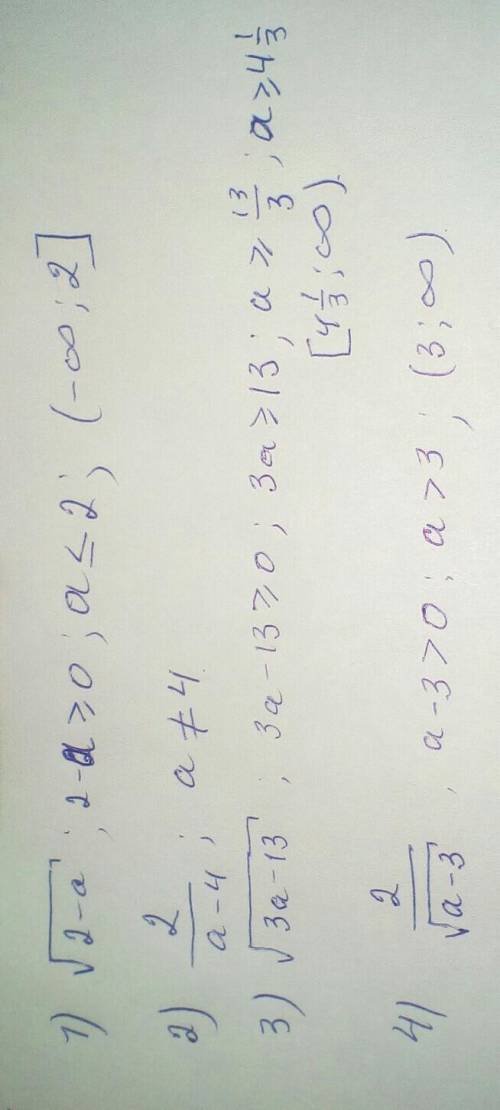 1) √(2-a) ; 2-a ≥ 0 ; a ≤ 2 ; (-∞ ; 2]
2) 2/(a-4) ; a ≠ 4
3) √(3a-13) ; 3a-13 ≥ 0 ; 3a ≥ 13 ; a ≥ 13/3 ; a ≥ 4 1/3
[4 1/3 ; ∞)
4) 2/√(a-3) , a-3 > 0 ; a > 3 ; (3 ; ∞)